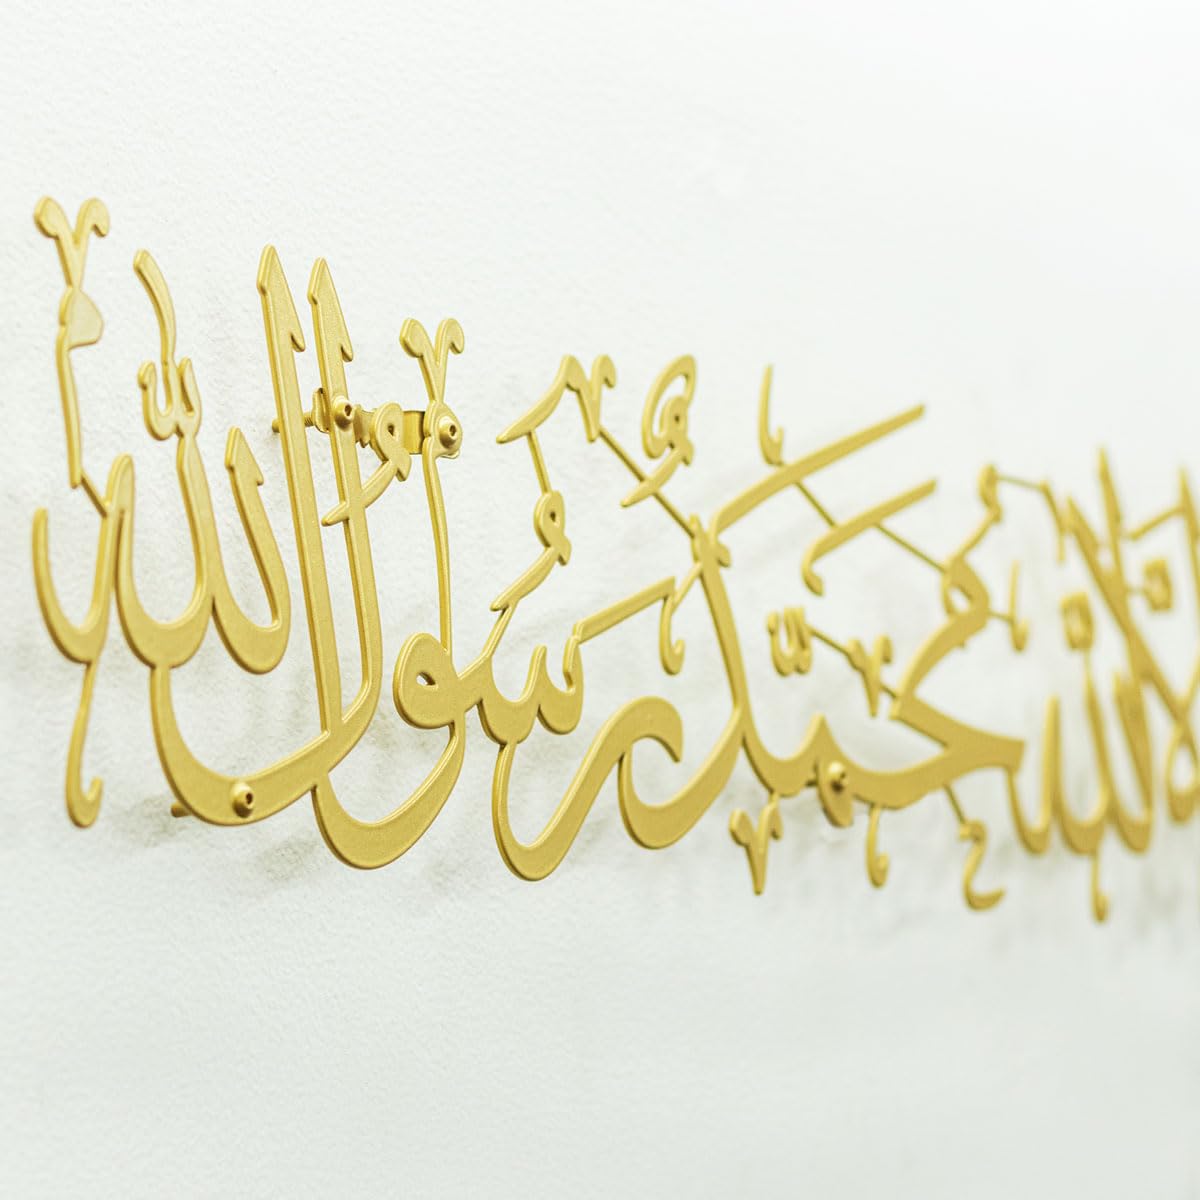 إلا الله محمد رسول الله